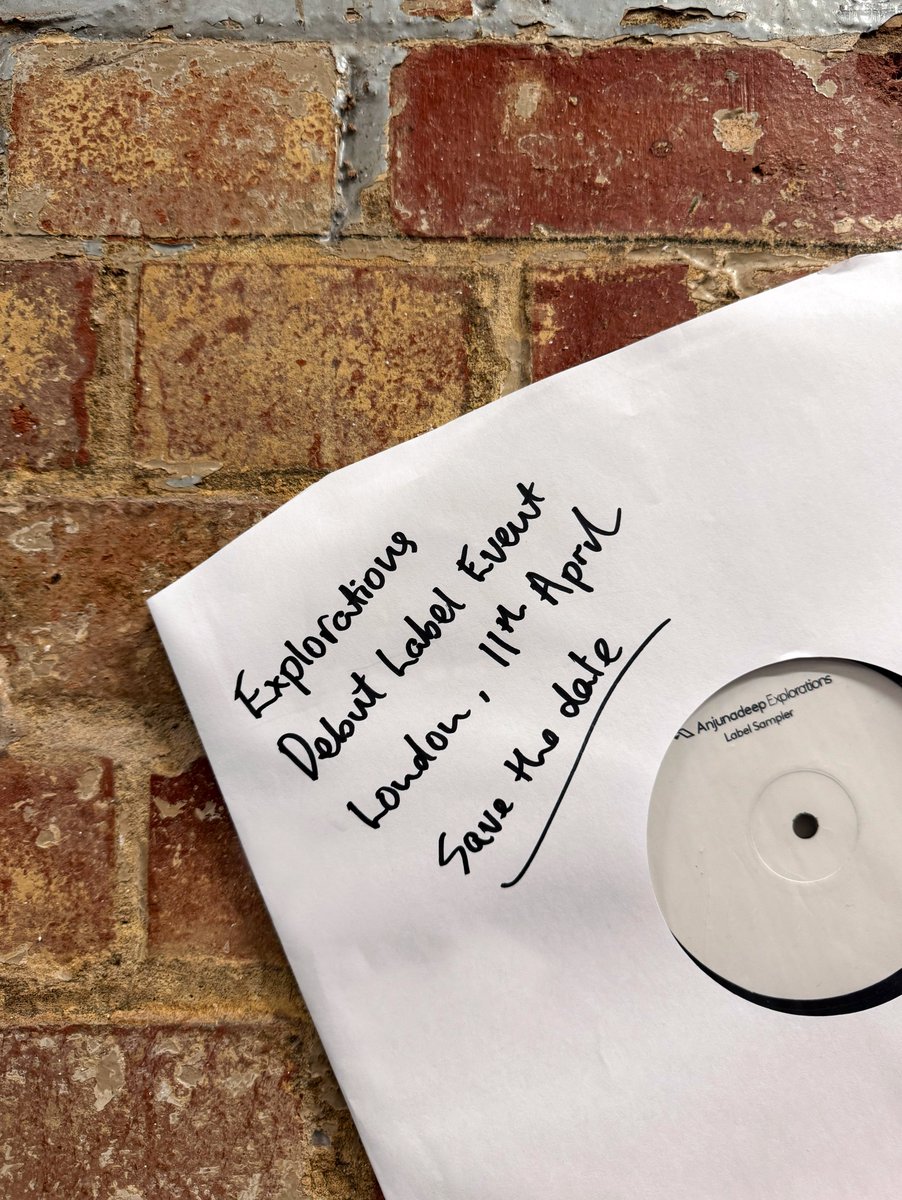 Explorations
Debut Label Event
London, 11th April
Save the date
Anjunadeep Explorations
Label Sampler